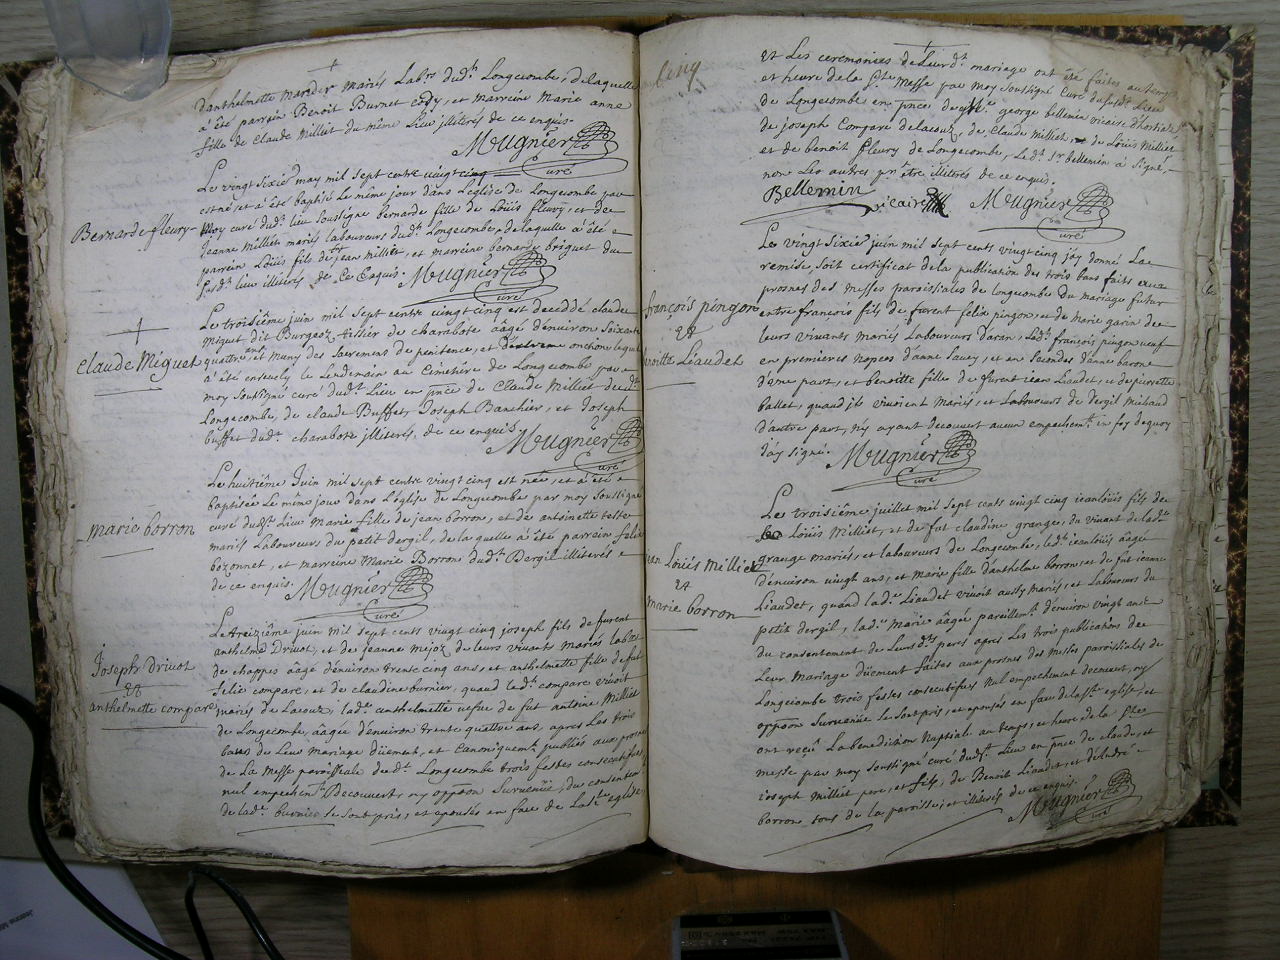 d'anthelmette maredor mariés Lab.rs dud.t Longecombe, delaquelle
a été parrein Benoit Burnet cody, et marreine Marie anne
fille de Claude Milliet du même Lieu illiterés de ce enquis.
Mugnier
Curé
Bernarde fleury
Le vingt sixiê may mil sept cents vingt cinq
est né, et a été baptisé Le même jour dans L'eglise de Longecombe par
Moy curé dud.t lieu soussigné bernarde fille de Loüis fleury, et de
Jeanne Milliet mariés laboureurs dud.t Longecombe, de laquelle a été
parrein Loüis fils de jean Milliet, et marreine bernarde briguet du
susd.t lieu illiterés de Ce Enquis. Mugnier
Curé
Claude Miguet
Le troisiême juin mil sept cents vingt cinq est decedé claude
Miguet dit Burgoz Tissier de charabote aâgé denuiron soixante
quatre ans muny des sacremens de penitence, et d'extreme onction lequel
a été enseuely le Lendemain au Cemetiere de Longecombe par
moy soussigné curé dud.t Lieu en pnce de Claude Milliet dud.t
Longecombe, de claude Buffet, Joseph Banchier, et Joseph
buffet dud.t charabote illiterés, de ce enquis. Mugnier
Curé
marie borron
Le huitiême Juin mil sept cents vingt cinq est née, et a été
baptisée Le même jour dans L'église de Longecombe par moy soussigné
curé dud.t Lieu Marie fille de jean borron, et de antoinette teste
mariés Laboureurs du petit dergil, de la quelle a été parrein felix
bozonnet, et marreine Marie Borron dud.t Dergil illiterés
de ce enquis. Mugnier
Curé
Joseph Drivot
&
anthelmette compare
Le treiziême juin mil sept cents vingt cinq joseph fils de furent
anthelme Drivot, et de jeanne mejoz de leurs vivants mariés lab.rs
de chappes aâgé d'enuiron trente cinq ans, et anthelmette fille de fut
felix compare, et de claudine burnier, quand led.t compare vivoit
mariés de Lacouz, lad.e anthelmette vefue de fut antoine Milliet
de Longecombe, âagée d'enuiron trente quattre ans, apres Les trois
bans de Leur Mariage düement, et Canoniquem.t publiés aux prones
de La Messe paroissiale dud.t Longecombe trois festes consecutifves
nul empechem.t Decouvert, ny oppôn survenuë, du consentem.t
de lad.e burnier se sont pris, et epousés en face de La s.te eglise
et Les ceremonies de Leurd.t mariage ont été faites au temps
et heure de la s.te Messe par moy soussigné curé du susd.t Lieu
de Longecombe en pnce de george bellemin vicaire d'hostiaz
de joseph Compare delacouz, de Claude Milliet, de Loüis Milliet
et de benoit fleury de Longecombe, Le d.t s.r bellemin a signé,
non Les autres p.r être illiterés de ce enquis.
Bellemin vicaire Mugnier
Curé
françois pingon
&
benoitte Liaudet
Le vingt sixiê juin mil sept cents vingt cinq j'ay donné La
remise, soit certificat de la publication des trois bans faits aux
prosnes des Messes paroissiales de longecombe du mariage futur
entre françois fils de furent felix pingon, et de Marie garin de
leurs vivants mariés Laboureurs daran, Led.t françois pingon veuf
en premieres nopces d'anne sauey, et en secondes d'anne borron
d'une part, et benoitte fille de furent jean Liaudet, et de pierrette
ballet, quand ils vivoient Mariés, et Laboureurs de dergil michaud
d'autre part, n'y ayant decouvert aucun empechem.t en foy de quoy
j'ay signé. Mugnier
Curé
jean Loüis Milliet
&
Marie borron
Le troisiême juillet mil sept cents vingt cinq jeanloüis fils de
Loüis Milliet, et de fut claudine grange, du vivant de lad.e
grange mariés, et laboureurs de Longecombe, led.t jeanloüis aâgé
d'enuiron vingt ans, et Marie fille d'anthelme borron, et de fut jeanne
Liaudet, quand lad.e Liaudet vivoit aussy mariés, et Laboureurs du
petit dergil, lad.e Marie aâgée pareillem.t d'enuiron vingt ans
du consentement de Leursd.ts peres apres Les trois publications de
Leur Mariage düement faites aux prosnes des Messes paroissiales de
Longecombe trois festes consecutifves nul empechement decouvert, ny
oppôn survenuë se sont pris, et epousés en face de la s.te eglise, et
ont reçeu La benediction Nuptiale au temps, et heure de la s.te
messe par moy soussigné curé dud.t Lieu en pnce de claude, et
joseph Milliet pere, et fils, de Benoit Liaudet, et d'André
borron tous de la parroisse, et illiterés de ce enquis.
Mugnier
Curé